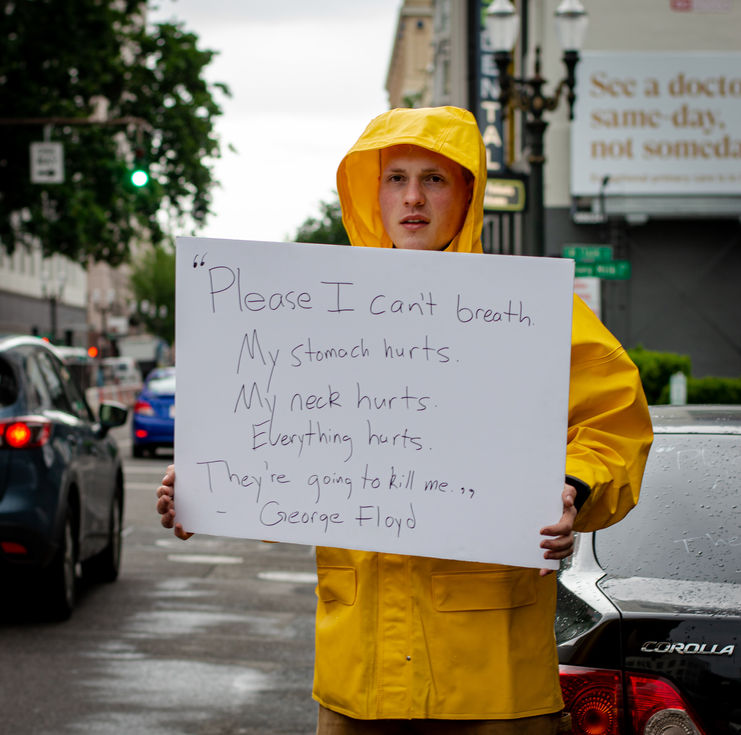 “Please I can't breath.
My stomach hurts.
My neck hurts.
Everything hurts.
They're going to kill me...”
- George Floyd
See a docto
same-day,
not someda
COROLLA